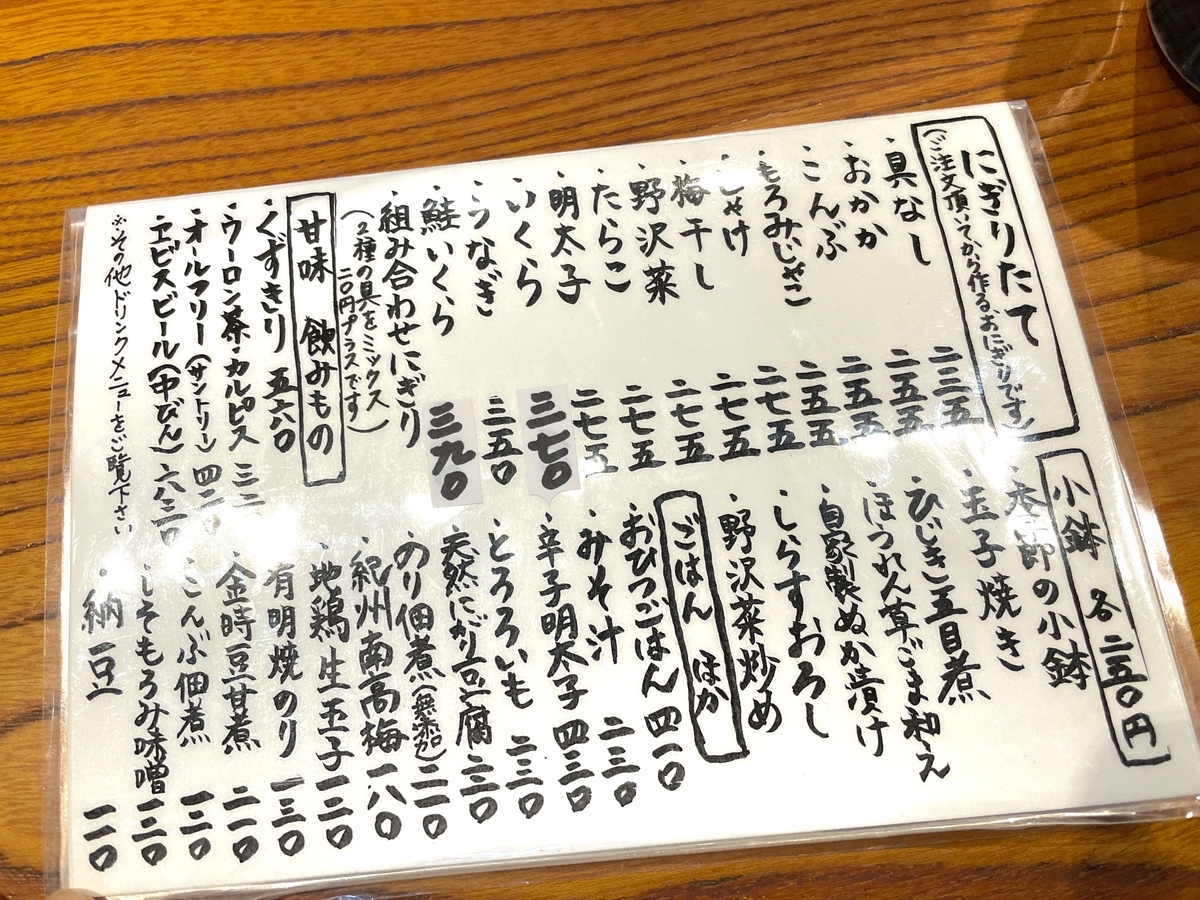 にぎりたて
(ご注文頂いてから作るおにぎりです)
・具なし 二三五
・おかか 二五五
・こんぶ 二五五
・もろみじゃこ 二五五
・しゃけ 二七五
・梅干し 二七五
・野沢菜 二七五
・たらこ 二七五
・明太子 二七五
・いくら 三七〇
・うなぎ 三五〇
・鮭いくら 三九〇
・組み合わせにぎり
(2種の具をミックス
二〇円プラスです)
甘味 飲みもの
・くずきり 五六〇
・ウーロン茶・カルピス
・オールフリー(サントリー)
・ヱビスビール(中びん)
※その他ドリンクメニューをご覧下さい
小鉢 各二五〇円
・太郎の小鉢
・玉子焼き
・ひじき五目煮
・ほうれん草ごま和え
・自家製ぬか漬け
・しらすおろし
・野沢菜炒め
ごはん ほか
・おひつごはん 四一〇
・みそ汁 二三〇
・辛子明太子 四三〇
・とろろいも 二三〇
・天然にがり豆腐 二三〇
・のり佃煮(無添加) 二一〇
・紀州南高梅 一八〇
・地鶏生玉子 一二〇
・有明焼のり 一三〇
・金時豆甘煮 二一〇
・こんぶ佃煮 一三〇
・しそもろみ味噌 一三〇
・納豆 一一〇